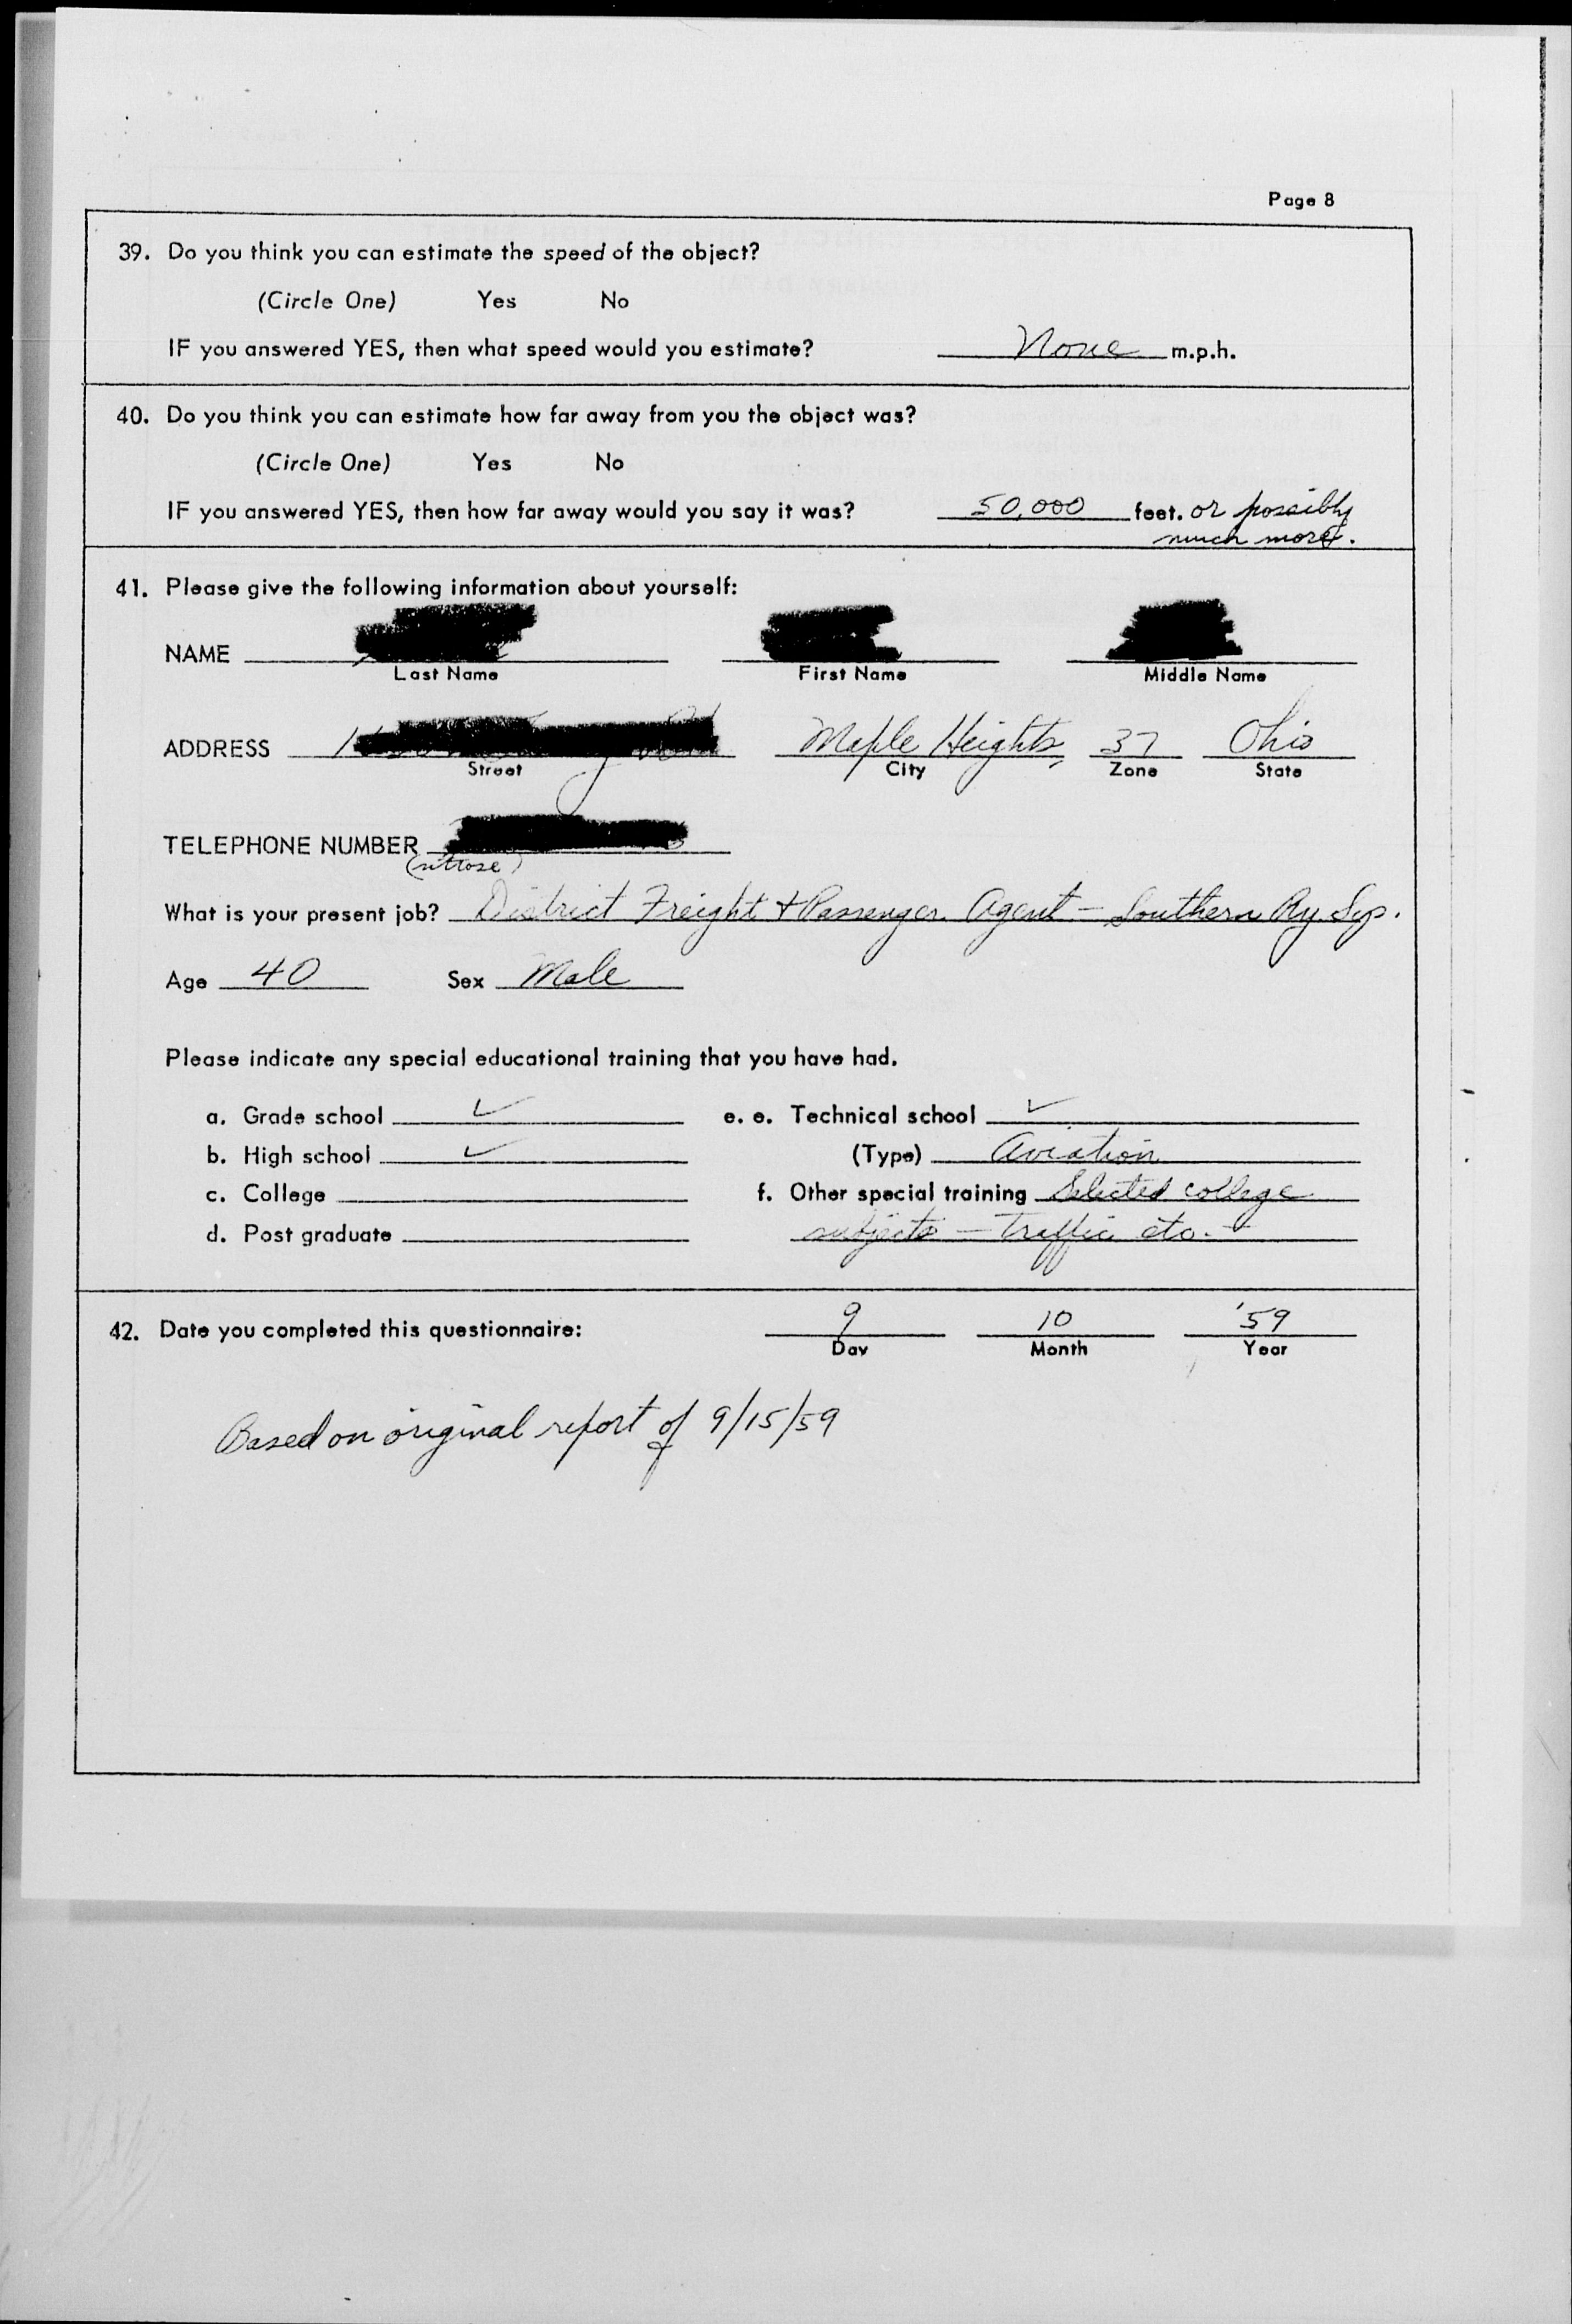 Page 8
39. Do you think you can estimate the speed of the object?
(Circle One) Yes No
IF you answered YES, then what speed would you estimate? None m.p.h.
40. Do you think you can estimate how far away from you the object was?
(Circle One) Yes No
IF you answered YES, then how far away would you say it was? 50,000 feet. or possibly
much more.
41. Please give the following information about yourself:
NAME
Last Name First Name Middle Name
ADDRESS Maple Heights, 37 Ohio
Street City Zone State
TELEPHONE NUMBER
What is your present job? District Freight + Passenger Agent - Southern Ry. Sys.
Age 40 Sex Male
Please indicate any special educational training that you have had.
a. Grade school ✓ e. e. Technical school ✓
b. High school ✓ (Type) Aviation
c. College f. Other special training Selected college
d. Post graduate subjects - Traffic etc. -
42. Date you completed this questionnaire: 9 10 '59
Day Month Year
Based on original report of 9/15/59